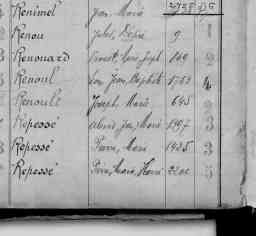 Renimel Jean Marie 2738 25
Renou Jules, Désiré 9 1
Renouard Vincent, Marie, Joseph 149 2
Renoul Jean Baptiste 1753 4
Renoulé Joseph Marie 645 2
Repessé Jean, Marie 1897 3
Repessé Pierre, Marie 1925 3
Repessé Marie, Henri 5